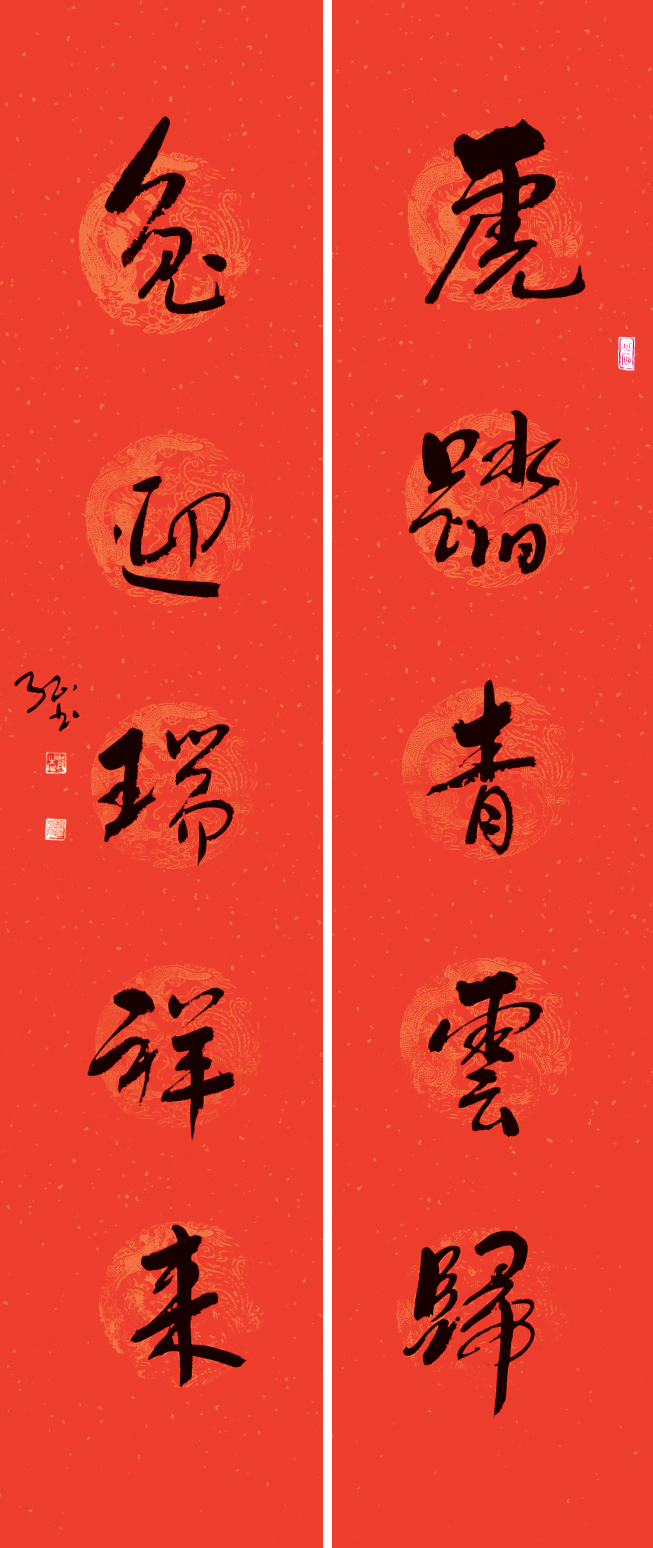 虎踏青雲歸
兔迎瑞祥来